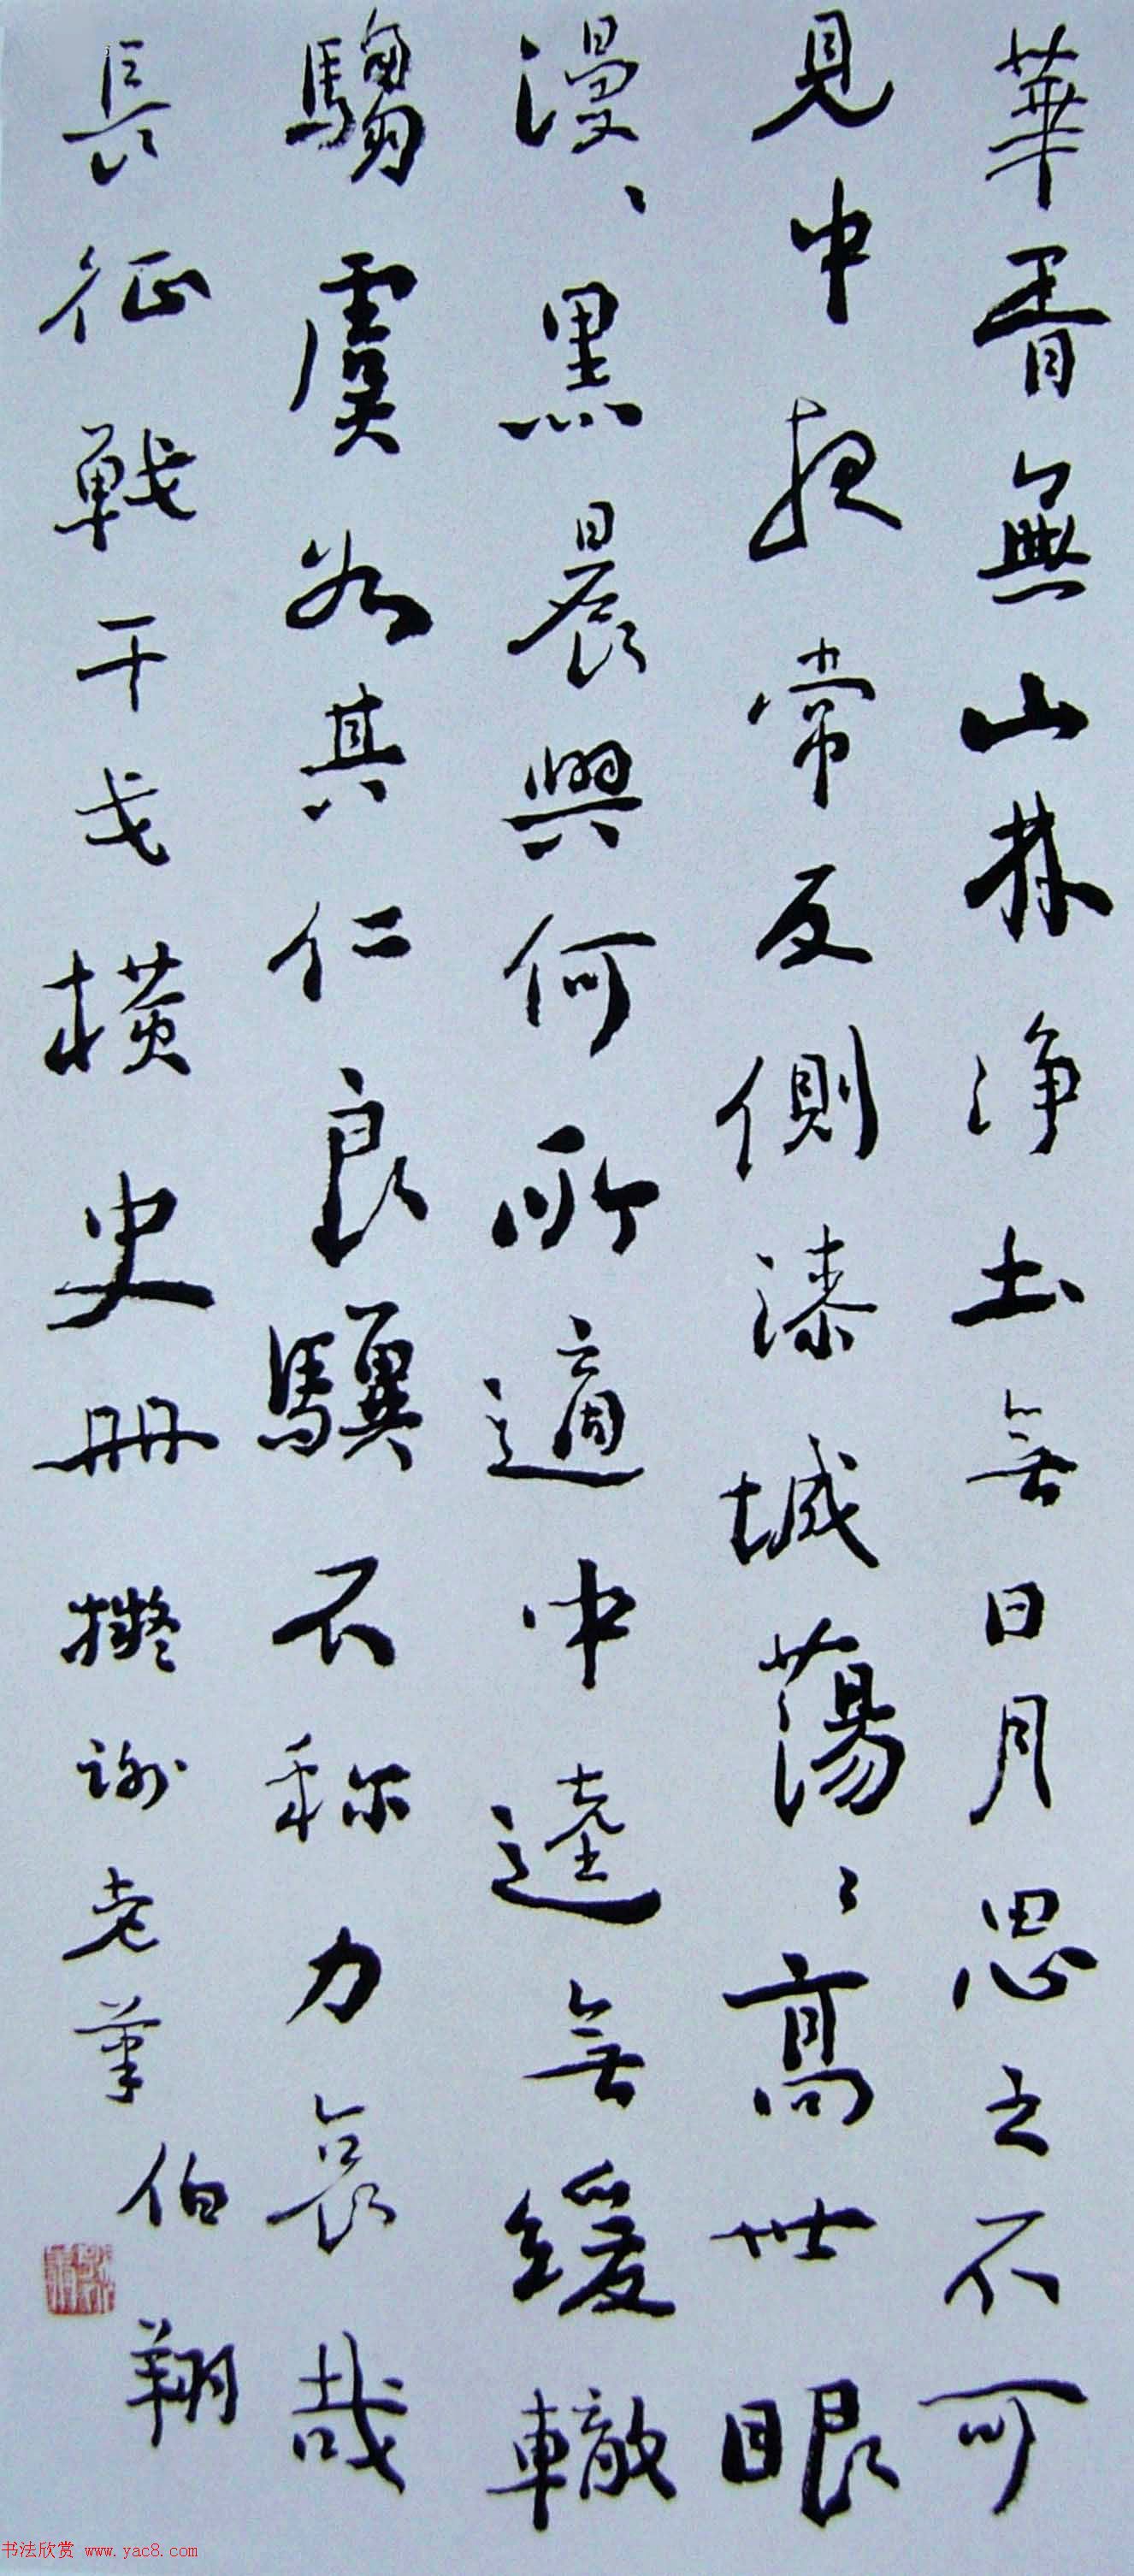 華胥無山林浄土無日月思之不可
見中夜常反側漆城蕩〻高世眼
漫〻黑晨興何所適中逵無緩轍
騶虞為其仁良驥不称力哀哉
長征戰干戈橫史冊 擬謝老筆
伯翔
书法欣赏 www.yac8.com